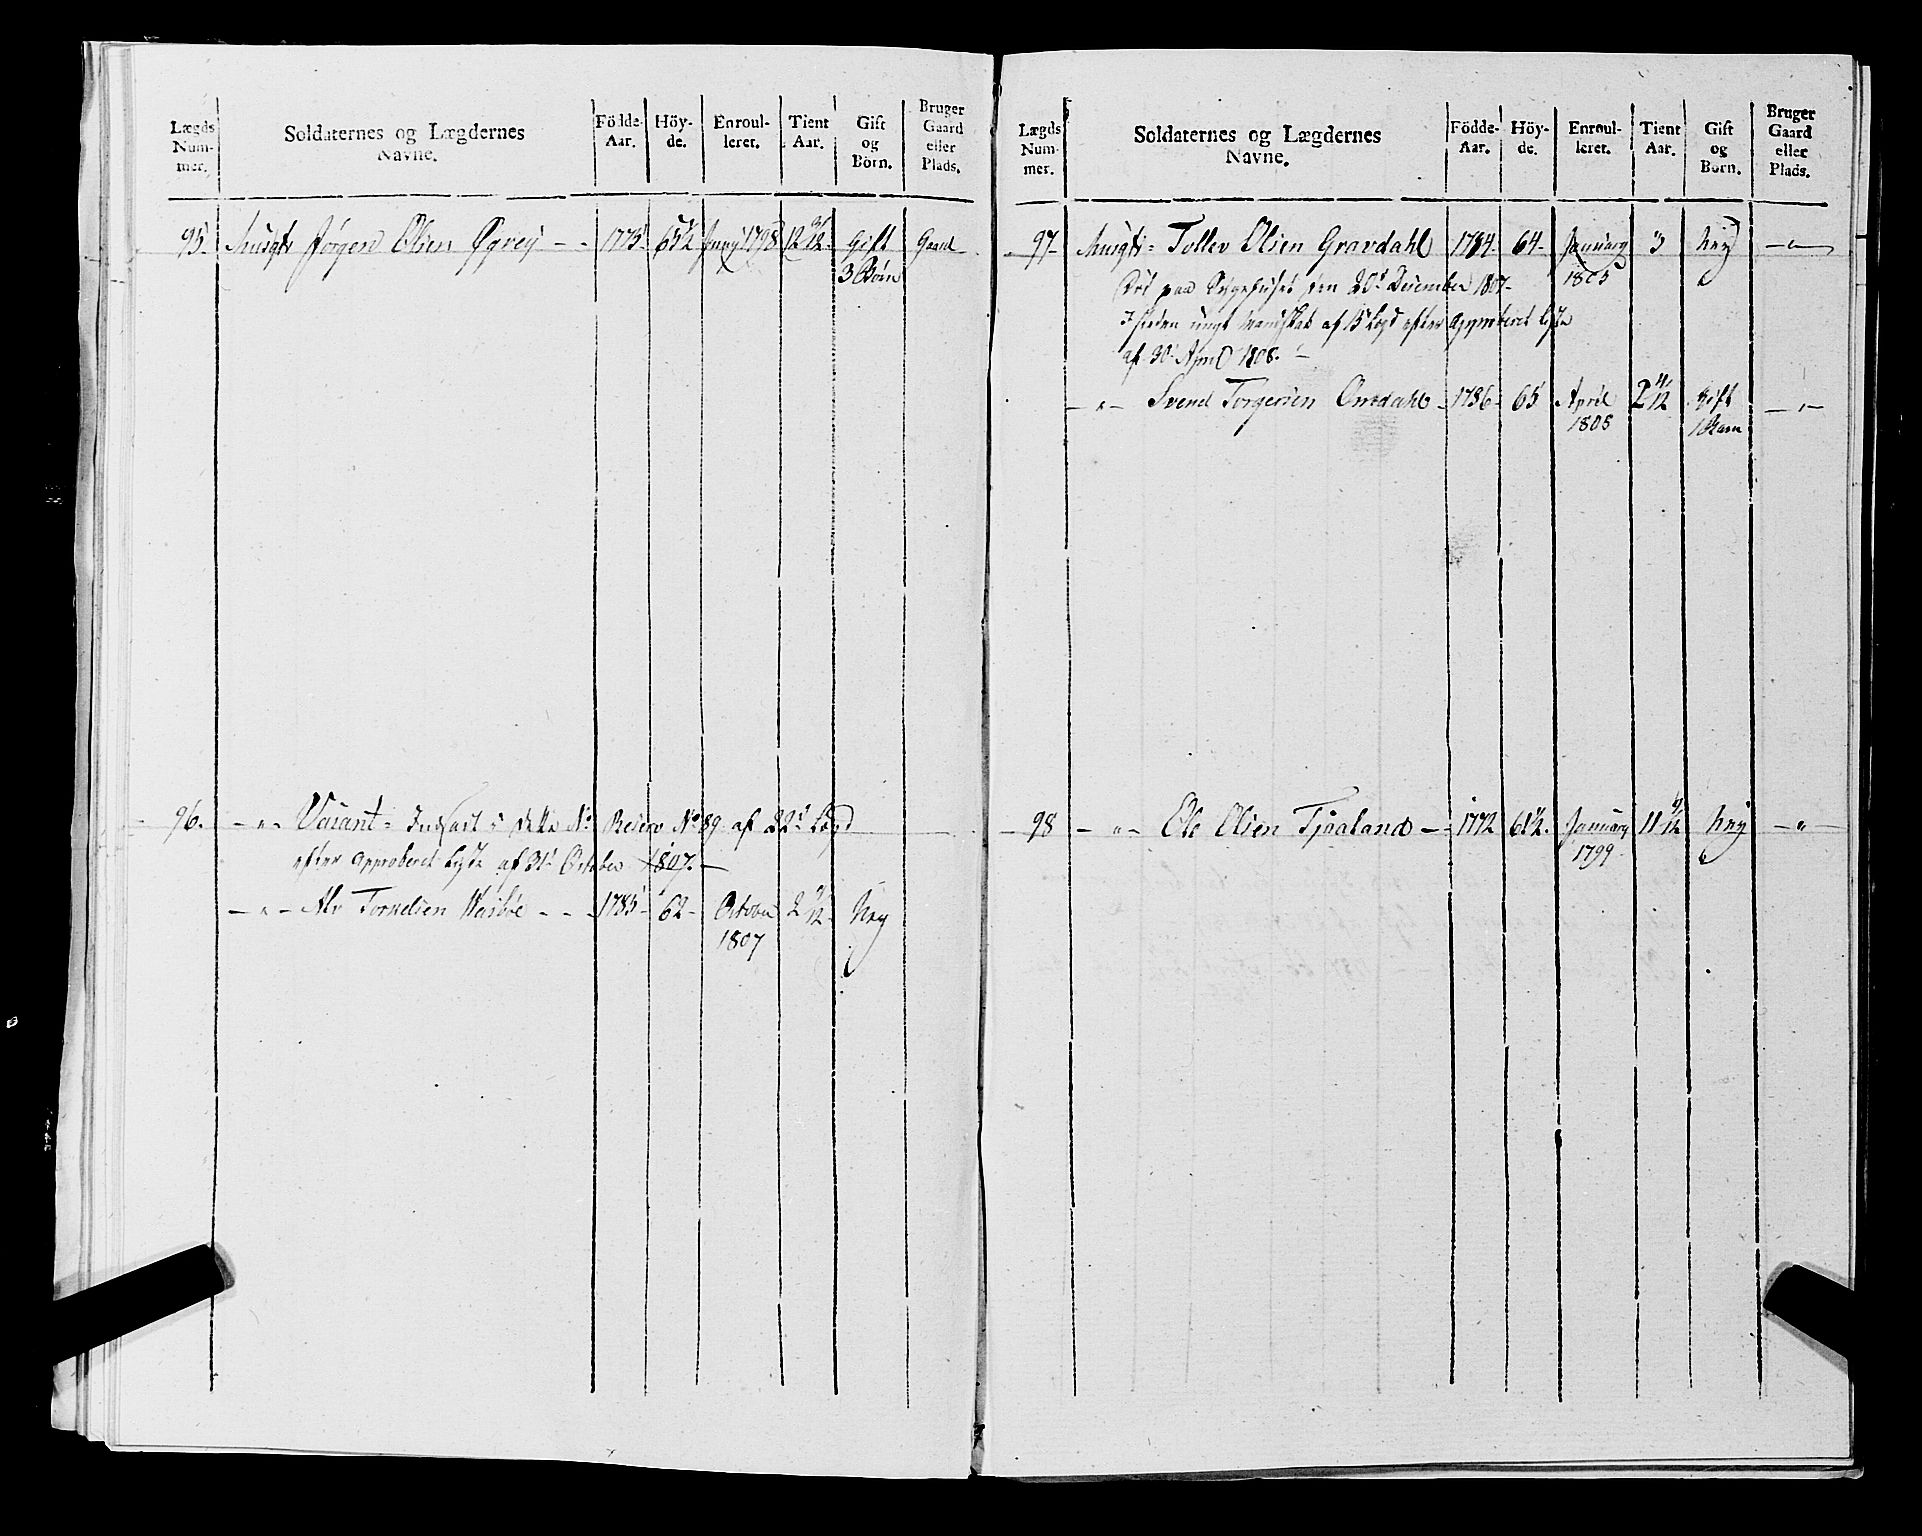 Lægds Num- mer. Soldaternes og Lægdernes Navne. Födde- Aar. Höy- de. Enroul- leret. Tient Aar. Gift og Börn. Bruger Gaard eller Plads.
95. Musqts Jørgen Olsen 1775 65½ 1798 Gift Gaard
3 Börn
96. — " — Vacant = Indsadt i dette No. Reserv No 89 af 22 Lægd
efter approberet Liste af 31 October 1807. —
— " — Alv Torkelsen - - 1785 - 62 - October 2 Ney
1807
Lægds Num- mer. Soldaternes og Lægdernes Navne. Födde- Aar. Höy- de. Enroul- leret. Tient Aar. Gift og Börn. Bruger Gaard eller Plads.
97 - Musqts = Tollev Olsen Gravdahl 1784 - 64 - January 3 Ney — " —
Död paa Sygehuset den 20 December 1807 - 1805
I steden ungt Mandskab af Lægd efter approberet Liste
af 30 April 1808. —
— " — Svend Torgersen Omdahl - 1786 - 65 April 2 Gift — " —
1808 1 Barn
98 — " — Ole Olsen Tjoaland — 1772 61½. January 11 Ney — " —
1799